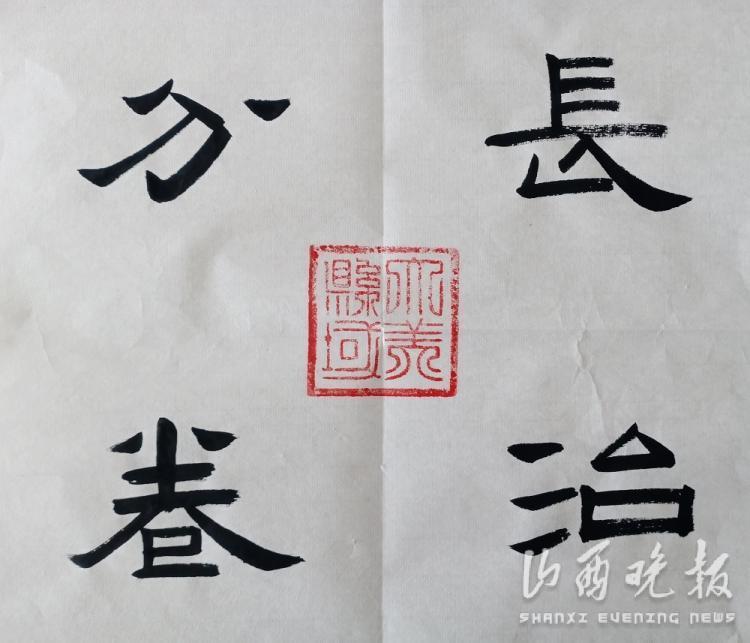 長治
分卷
大美
縣域
山西晚报
SHANXI EVENING NEWS